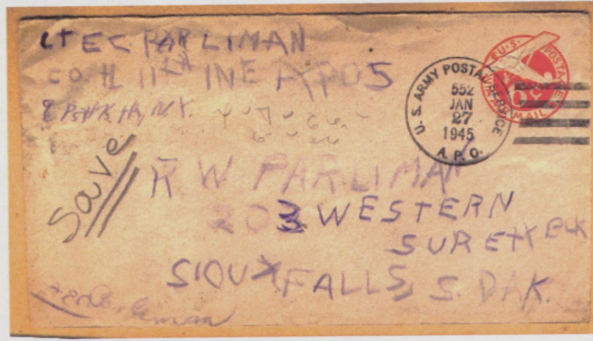 LT E C PARLIMAN
CO H 11th INF APO 5
% PM N.Y., N.Y.
Save
U.S. ARMY POSTAL SERVICE
552
JAN
27
1945
A.P.O.
U.S. POSTAGE
6c
AIR MAIL
R W PARLIMAN
203 WESTERN
SURETY BLK
SIOUX FALLS, S. DAK.